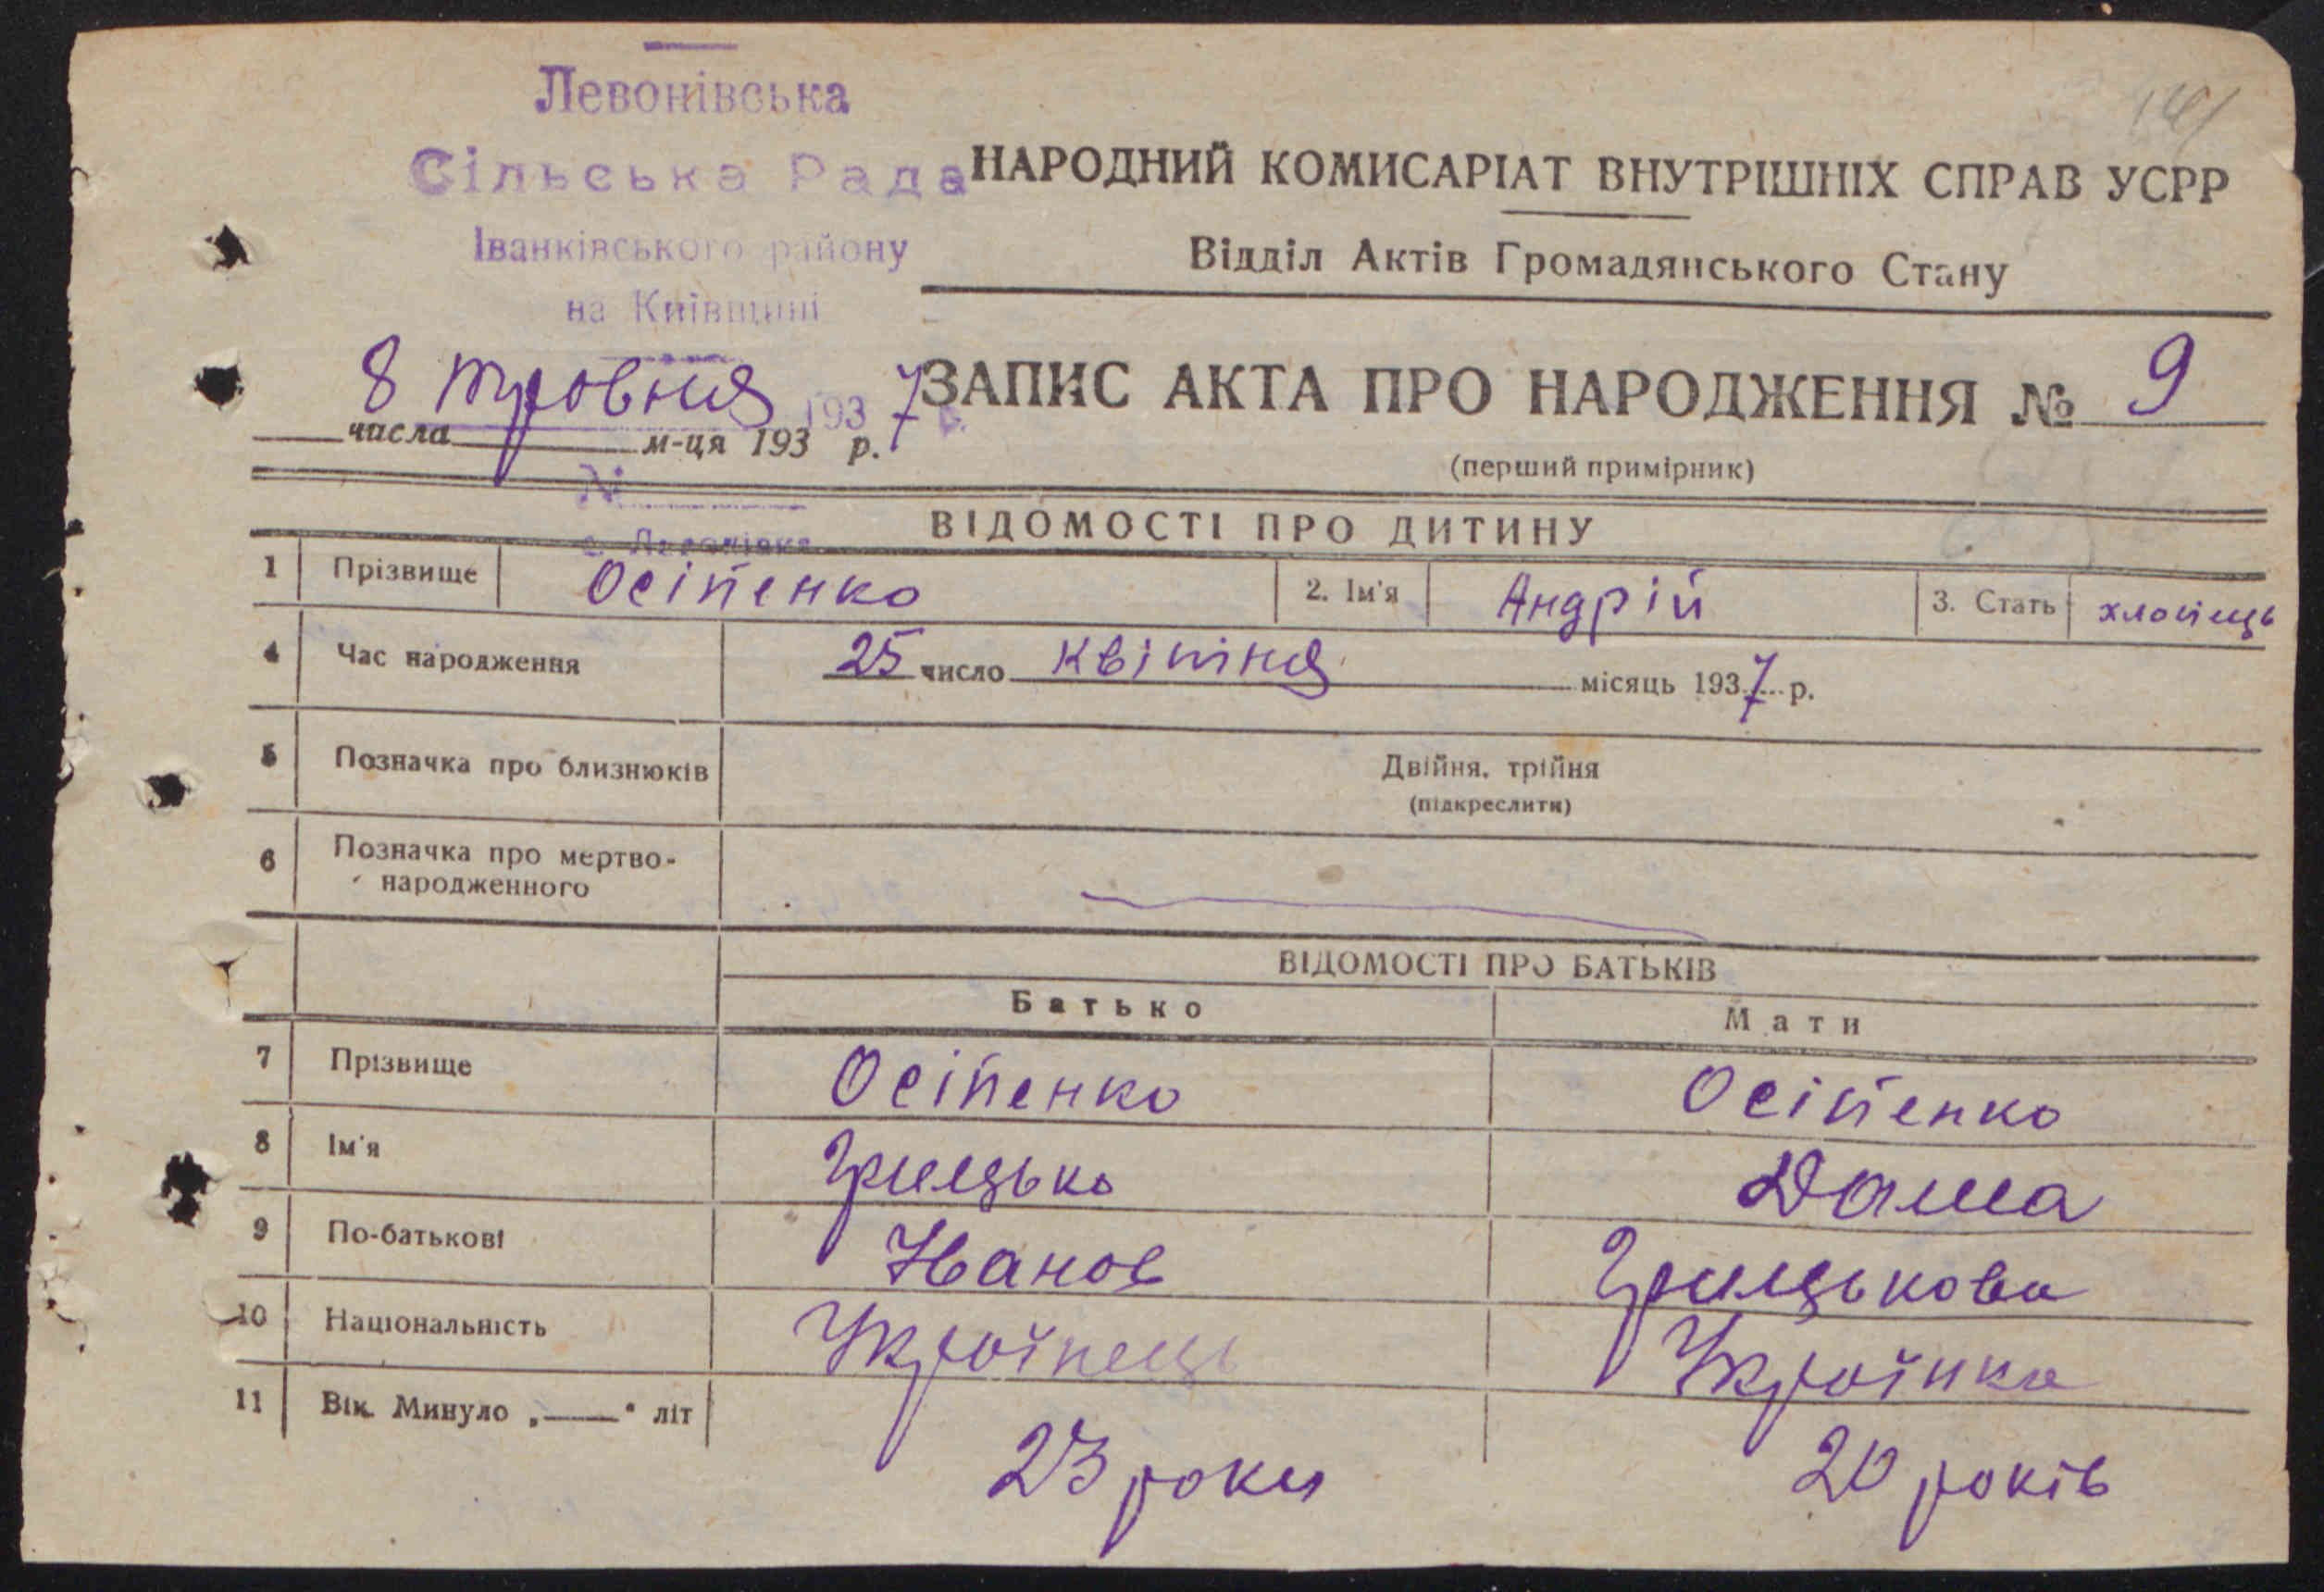 Левонівська
Сільська Рада
Іванківського району
на Київщині
141
НАРОДНИЙ КОМИСАРІАТ ВНУТРІШНІХ СПРАВ УСРР
Відділ Актів Громадянського Стану
8 тровня 1937 р.
числа м-ця 193 р.
ЗАПИС АКТА ПРО НАРОДЖЕННЯ № 9
(перший примірник)
№
с. Левонівка
ВІДОМОСТІ ПРО ДИТИНУ
1 Прізвище Осіпенко 2. Ім'я Андрій 3. Стать хлопець
4 Час народження 25 число квітня місяць 1937 р.
5 Позначка про близнюків Двійня, трійня
(підкреслити)
6 Позначка про мертво-
народженного
ВІДОМОСТІ ПРО БАТЬКІВ
Батько Мати
7 Прізвище Осіпенко Осіпенко
8 Ім'я Грицько Даша
9 По-батькові Иванов Грицькова
10 Національність Україпець Українка
11 Вік. Минуло „——" літ 23 роки 20 років